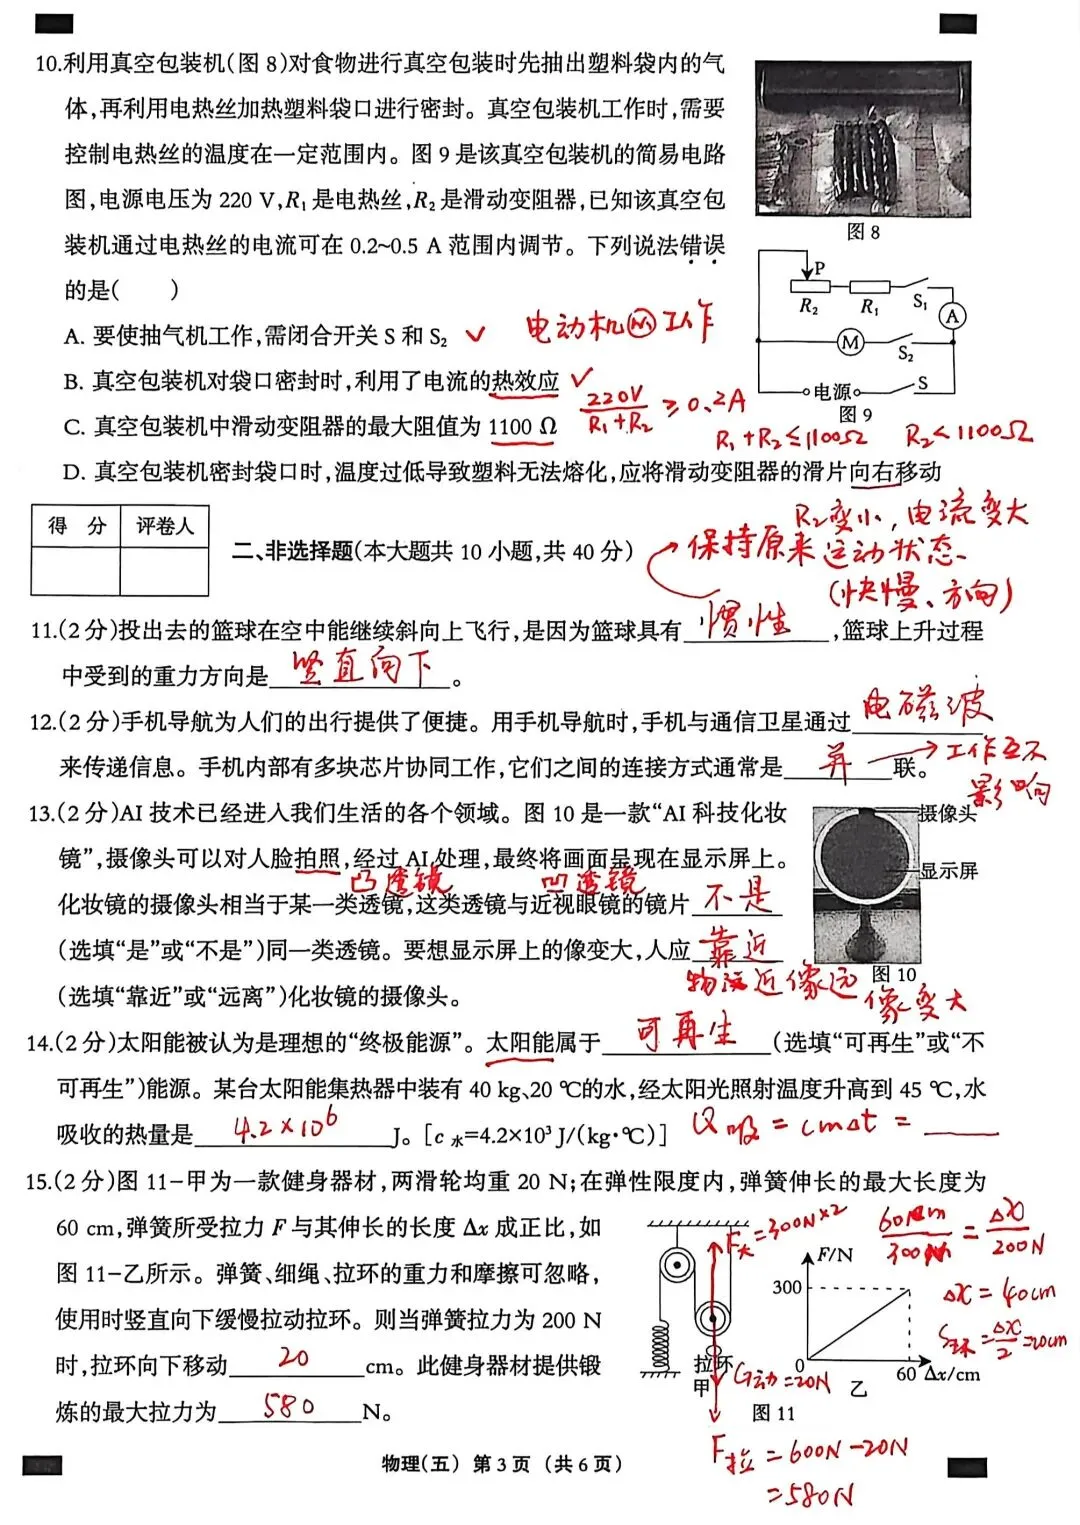 10.利用真空包装机(图8)对食物进行真空包装时先抽出塑料袋内的气
体,再利用电热丝加热塑料袋口进行密封。真空包装机工作时,需要
控制电热丝的温度在一定范围内。图9是该真空包装机的简易电路
图,电源电压为220 V,R₁是电热丝,R₂是滑动变阻器,已知该真空包
装机通过电热丝的电流可在0.2~0.5 A范围内调节。下列说法错误
的是(  )
图8
P
R₂
R₁
S₁
A
M
S₂
电源
S
图9
A. 要使抽气机工作,需闭合开关S和S₂ ✓ 电动机Ⓜ工作
B. 真空包装机对袋口密封时,利用了电流的热效应 ✓
220V/(R₁+R₂) ≥0.2A
C. 真空包装机中滑动变阻器的最大阻值为1100 Ω
R₁+R₂≤1100Ω R₂<1100Ω
D. 真空包装机密封袋口时,温度过低导致塑料无法熔化,应将滑动变阻器的滑片向右移动
R₂变小,电流变大
得 分 评卷人
二、非选择题(本大题共10小题,共40分)
保持原来运动状态
(快慢、方向)
11.(2分)投出去的篮球在空中能继续斜向上飞行,是因为篮球具有 惯性 ,篮球上升过程
中受到的重力方向是 竖直向下 。
12.(2分)手机导航为人们的出行提供了便捷。用手机导航时,手机与通信卫星通过 电磁波
来传递信息。手机内部有多块芯片协同工作,它们之间的连接方式通常是 并 联。
工作互不
影响
13.(2分)AI技术已经进入我们生活的各个领域。图10是一款“AI科技化妆
镜”,摄像头可以对人脸拍照,经过AI处理,最终将画面呈现在显示屏上。
凸透镜 凹透镜
化妆镜的摄像头相当于某一类透镜,这类透镜与近视眼镜的镜片 不是
(选填“是”或“不是”)同一类透镜。要想显示屏上的像变大,人应 靠近
(选填“靠近”或“远离”)化妆镜的摄像头。
物近像远像变大
摄像头
显示屏
图10
14.(2分)太阳能被认为是理想的“终极能源”。太阳能属于 可再生 (选填“可再生”或“不
可再生”)能源。某台太阳能集热器中装有40 kg、20 ℃的水,经太阳光照射温度升高到45 ℃,水
吸收的热量是 4.2×10⁶ J。[c水=4.2×10³ J/(kg·℃)] Q吸=cm△t=
15.(2分)图11-甲为一款健身器材,两滑轮均重20 N;在弹性限度内,弹簧伸长的最大长度为
60 cm,弹簧所受拉力F与其伸长的长度Δx成正比,如
图11-乙所示。弹簧、细绳、拉环的重力和摩擦可忽略,
使用时竖直向下缓慢拉动拉环。则当弹簧拉力为200 N
时,拉环向下移动 20 cm。此健身器材提供锻
炼的最大拉力为 580 N。
F大=300N×2
60cm/300N = △x/200N
△x=40cm
S环=△x/2=20cm
F/N
300
0
60
Δx/cm
拉环
甲
G动=20N
乙
图11
F拉=600N-20N
=580N
物理(五) 第3页(共6页)